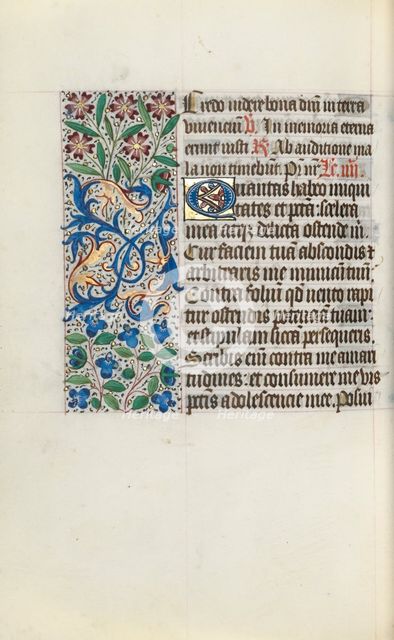 Credo videre bona dñi in terra
viventiũ. V. In memoria eterna
erunt iusti. R. Ab auditione ma
la non timebunt. Pr̃ nr̃. Lc. iiii.
Quantas habeo iniqui
tates et pctã: scelera
mea atqz delicta ostende m̃.
Cur faciem tuã abscondis: et
arbitraris me inimicũ tuũ.
Contra foliũ qd̃ vento rapi
tur ostendis potentiam tuam:
et stipulam siccã persequeris.
Scribis eñi contra me amari
tudines: et consumere me vis
pctis adolescencie mee. Posui
Heritage
Heritage
Heritage
Heritage